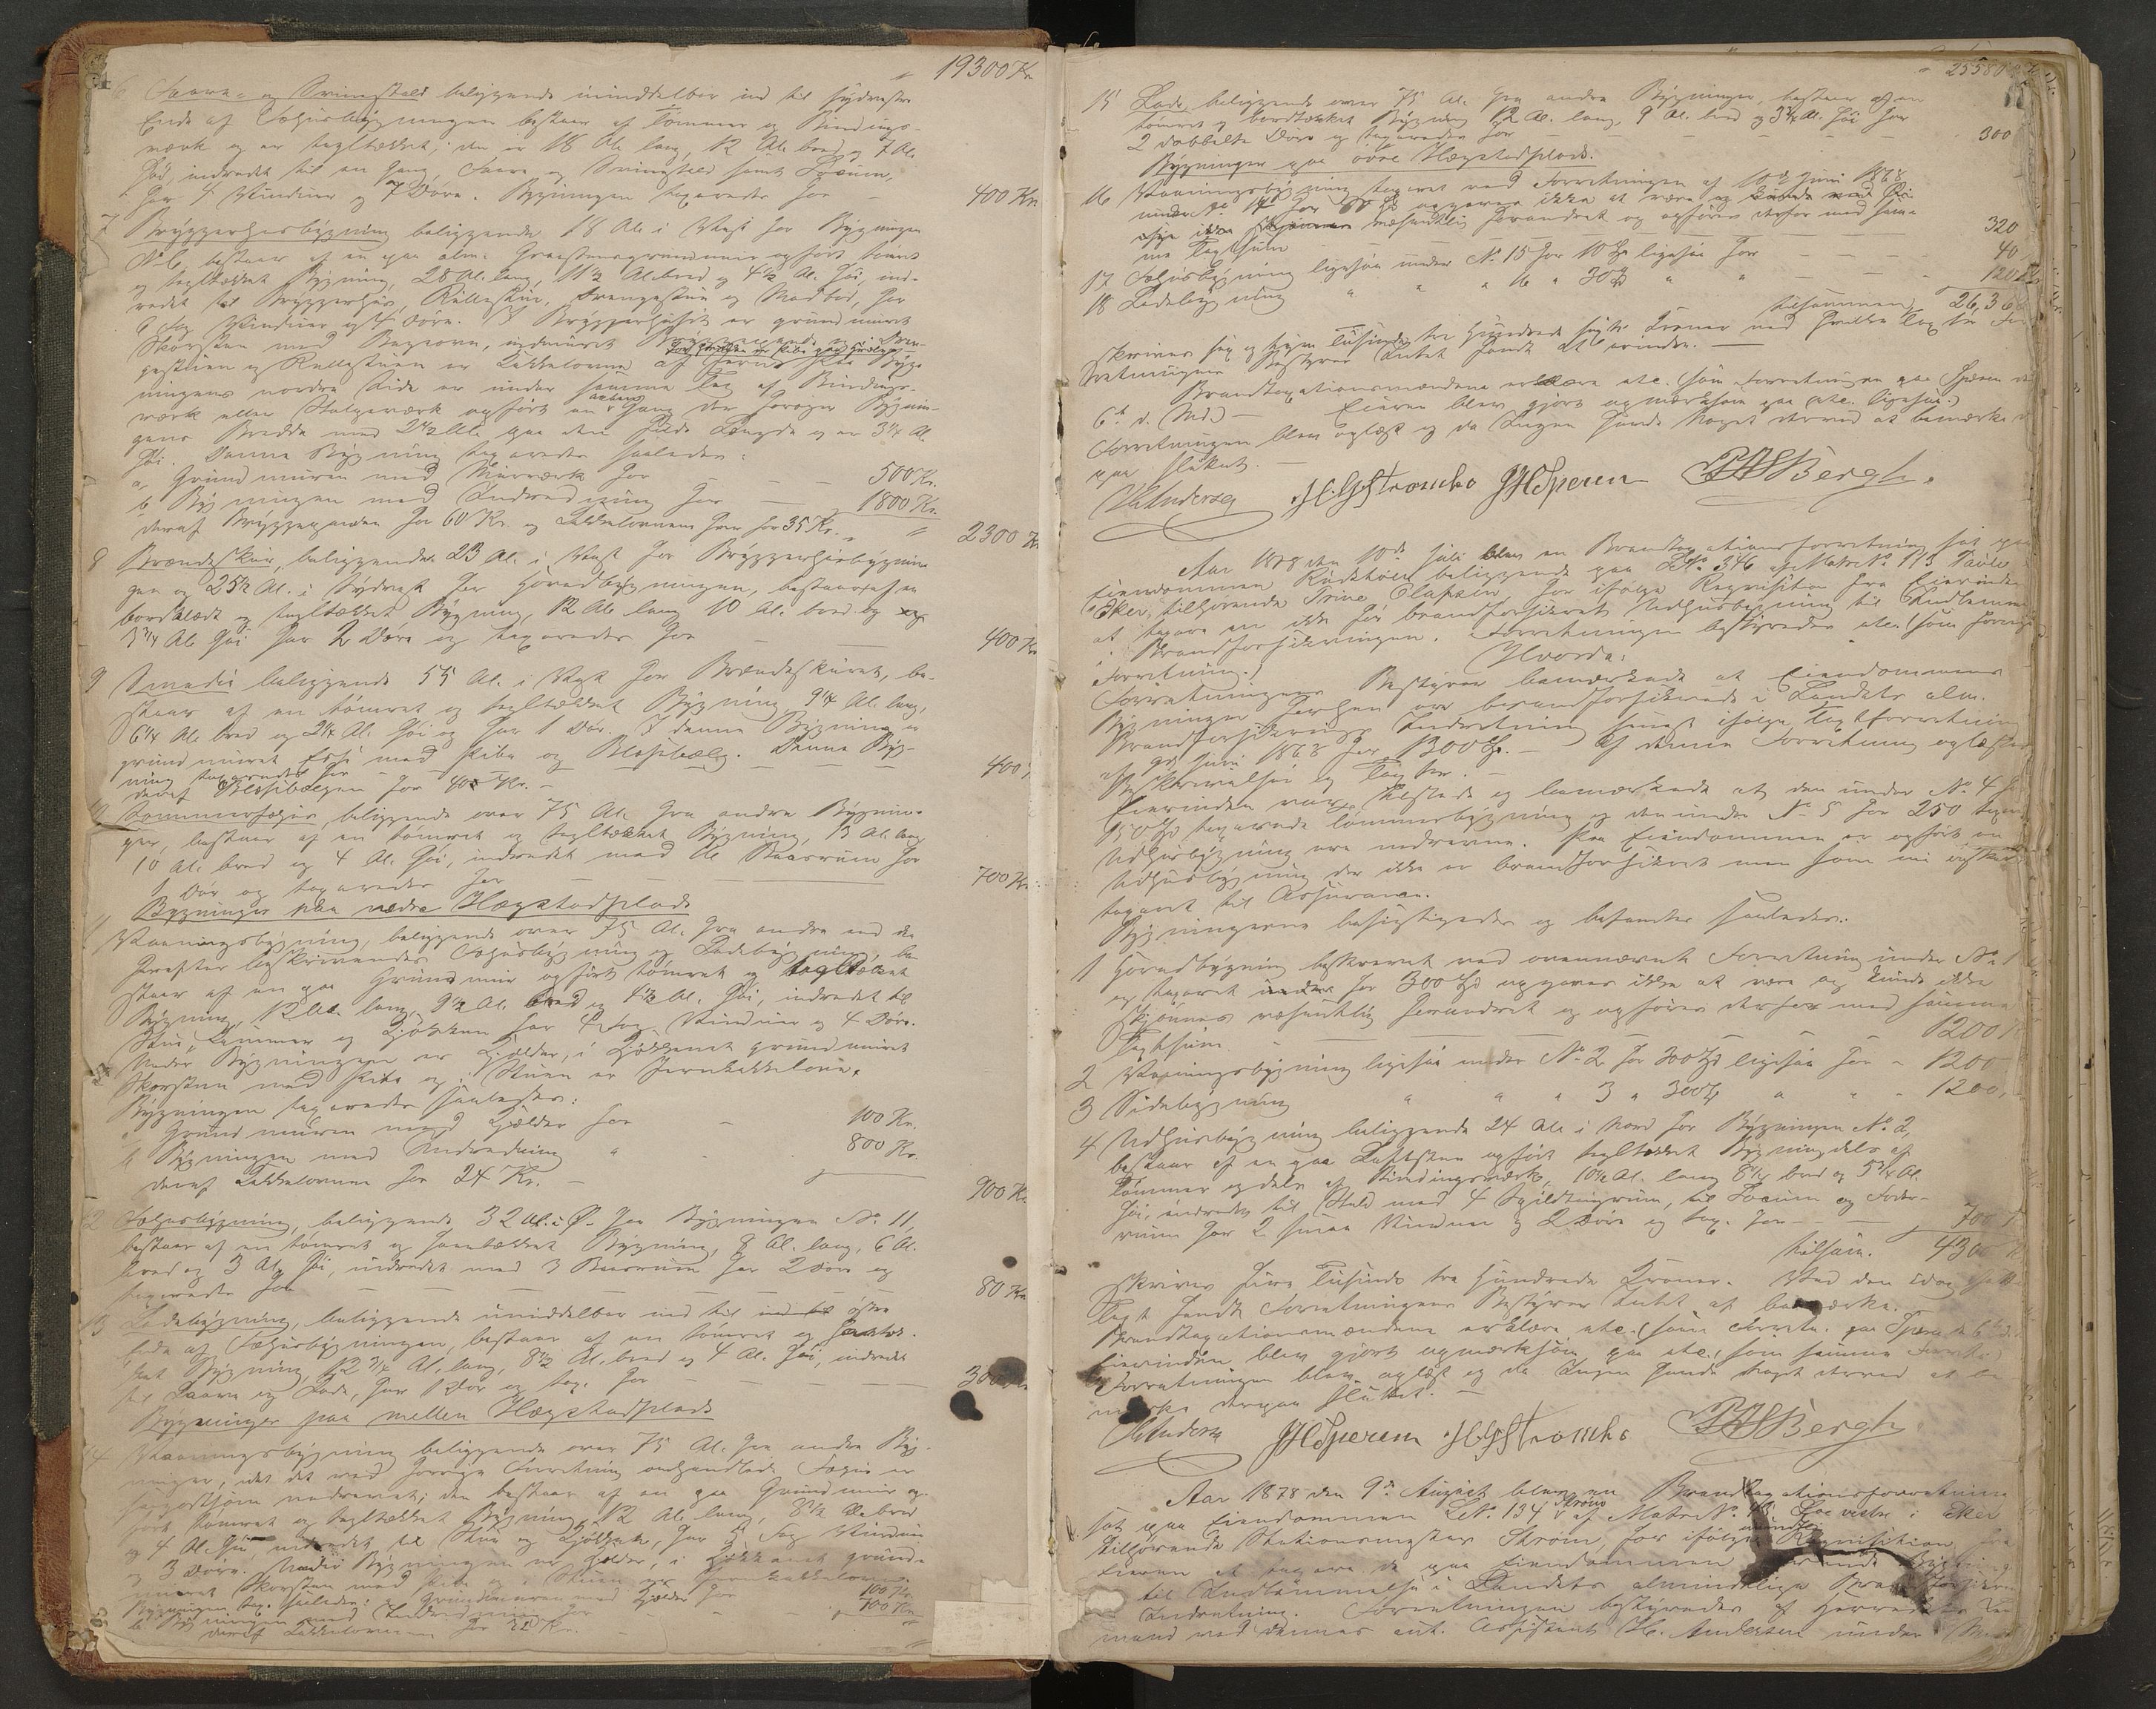 19300 Kr.
6 Faare- og Svinestald beliggende umiddelbar ind til sydvestre
Ende af Fæhusbygningen bestaar af Tømmer og Bindings-
værk og er tegltækket; den er 18 Al. lang, 12 Al. bred og 7 Al.
høi, indredet til en Gang, Faare og Svinestald samt
har 4 Vinduer og 7 Døre. Bygningen taxeredes for 400 Kr.
7 Bryggerhusbygning beliggende 18 Al. i Vest for Bygningen
No 6, bestaar af en paa alm. Graastensgrundmuur opført tømret
og tegltækket Bygning, 28 Al. lang, 11½ Al. bred og 4½ Al. høi, ind-
redet til Bryggerhus, Rullestue, Drengestue og Madbod, har
6 Fag Vinduer og Døre. I Bryggerhuset er grundmuret
Skorsten med Bageovn, indmuret Bryggepande i Dren-
gestuen og Rullestuen er Kakkelovne af Jern
ningens nordre Side er under samme Tag af Bindings-
værk eller Stolpeværk opført en aaben Gang der forøger Bygnin-
gens Bredde med 2½ Al. paa den fulde Længde og er 3¼ Al.
høi. Denne Bygning taxeredes saaledes:
a, Grundmuren med Murværk for 500 Kr.
b Bygningen med Indredning for 1800 Kr.
deraf Bryggepanden for 60 Kr. og Kakkelovnene for 35 Kr. 2300 Kr
8 Brændeskur, beliggende 23 Al. i Vest for Bryggerhusbygnin-
gen og 25½ Al. i Sydvest for Hovedbygningen, bestaar af en
bordklædt og tegltækket Bygning, 12 Al. lang 10 Al. bred og
3¾ Al. høi har 2 Døre og taxeredes for 400 Kr
9 Smedie beliggende 55 Al. i Vest for Brændeskuret, be-
staar af en tømret og tegltækket Bygning, 9¼ Al. lang,
6¼ Al. bred og 2¼ Al. høi og har 1 Dør. I denne Bygning er
grundmuret Esse med Pibe og Blæsebælg. Denne Byg-
ning taxeredes for 400
deraf Blæsebælgen for 40 Kr.
10 Sommerfæhus beliggende over 75 Al. fra andre Bygnin-
ger, bestaar af en tømret og tegltækket Bygning, 13 Al. lang
10 Al. bred og 4 Al. høi, indredet med Baasrum har
1 Dør og taxeredes for 700 Kr.
Bygninger paa nedre Hægstadplads
11 Vaaningsbygning, beliggende over 75 Al. fra andre end den
herefter beskrivendes Fæhusbygning og Ladebygning, be-
staar af en paa Grundmur opført tømret og tegltækket
Bygning, 12 Al. lang, 9½ Al. bred og 4½ Al. høi, indredet til
Stue, Kammer og Kjøkken har 4 Fag Vinduer og 4 Døre.
Under Bygningen er Kjælder, i Kjøkkenet grundmuret
Skorsten med Pibe og i Stuen er Jernkakkelovn.
Bygningen taxeredes saaledes:
a Grundmuren med Kjælder for 100 Kr.
b Bygningen med Indredning " 800 Kr.
deraf Kakkelovnen for 24 Kr. 900 Kr.
12 Fæhusbygning, beliggende 32 Al. i Ø. for Bygningen No. 11,
bestaar af en tømret og Bygning, 8 Al. lang, 6 Al.
bred og 3 Al. høi, indredet med 3 Baasrum har 2 Døre og
taxeredes for 80 Kr.
13 Ladebygning, beliggende umiddelbar ind til østre
Ende af Fæhusbygningen, bestaar af en tømret og
ket Bygning 12¾ Al. lang, 8½ Al. bred og 4 Al. høi, indredet
til Laave og Lade, har 1 Dør og tax. for 300 Kr.
Bygninger paa mellem Hægstadplads
14 Vaaningsbygning beliggende over 75 Al. fra andre Byg-
ninger, idet det ved forrige Forretning omhandlede Fæhus er
nedrevet; den bestaar af en paa Grundmur op-
ført tømret og tegltækket Bygning, 12 Al. lang, 8½ Al. bred
og 4 Al. høi, indredet til Stue og Kjøkken, har Fag Vinduer
og 3 Døre. Under Bygningen er Kjælder, i Kjøkkenet grund-
muret Skorsten med Pibe og i Stuen er Jernkakkelovn.
Bygningen tax. saaledes: a Grundmuren med Kjælder for 100 Kr.
b Bygningen med Indredning for 700 Kr.
deraf Kakkelovnen for Kr.
25580
15 Lade, beliggende over 75 Al. fra andre Bygninger, bestaar af en
tømret og bordtækket Bygning 12 Al. lang, 9 Al. bred og 3¾ Al. høi har
2 dobbelte Døre og taxeredes for 300
Bygninger paa øvre Hægstadplads.
16 Vaaningsbygning taxeret ved Forretningen af 10de Juni 1868
under No 14 for 80 Spd opgaves ikke at være og kunde ved Be-
sigt ikke skjønnes væsentlig forandret og opføres derfor med sam-
me Taxtsum 320
17 Fæhusbygning ligesaa under No. 15 for 10 Spd ligesaa for 40
18 Ladebygning " " " 16 " 30 Spd " " 120 Kr
tilsammen 26,360
skriver sex og tyve Tusinde tre Hundrede sexti Kroner ved hvilken Taxt For-
retningens Bestyrer Intet fandt at erindre.
Brandtaxationsmændene erklære etc. (som Forretningen paa Speren den
6te d. Md.) Eieren blev gjort opmærksom paa (etc. ligesaa.)
Forretningen blev oplæst og da Ingen havde Noget derved at bemærke
paa sluttet.
H. Andersen H. G. Stromsbo J. H. Sperun P. H. S. Bergh.
Aar 1878 den 10de Juli blev en Brandtaxationsforretning sat paa
Eiendommen beliggende paa LNo. 346 af Matr. No. 113
Eker, tilhørende Trine Olafsen for ifølge Requisition fra Eierinden
at taxere en ikke før brandforsikret Udhusbygning til Indlemmelse
i Brandforsikringen. Forretningen bestyredes etc. (som forrige
Forretning.)
Hvorda:
Forretningens Bestyrer bemærkede at Eiendommens
Bygninger forhen ere brandforsikrede i Landets alm.
Brandforsikrings Indretning senest ifølge Taxtforretning
af 9de Juni 1868 for 1300 Spd. Af denne Forretning oplæstes
Beskrivelse og Taxter.
Eierinden var tilstede og bemærkede at den under No 4 for
150 Spd taxerede Tømmerbygning og den under No 5 for 250 taxerede
Udhusbygning ere nedrevne. Paa Eiendommen er opført en
Udhusbygning der ikke er brandforsikret men som nu ønskes
taxeret til Assurance.
Bygningerne besigtigedes og befandtes saaledes:
1 Hovedbygning beskrevet ved ovennævnte Forretning under No. 1
og taxeret for 300 Spd opgaves ikke at være og kunde ikke
skjønnes væsentlig forandret og opføres derfor med samme
Taxtsum 1200
2 Vaaningsbygning ligesaa under No. 2 for 300 Spd ligesaa for 1200
3 Sidebygning " " " 3 " 300 Spd " " 1200,
4 Udhusbygning beliggende 24 Al. i Nord for Bygningen No. 2,
bestaar af en paa opført tegltækket Bygning dels af
Tømmer og dels af Bindingsværk, 10½ Al. lang 8¾ bred og 5¾ Al.
høi, indredet til Stald med 4 Spiltougrum, til og Foder-
rum har 2 smaa Vinduer og 2 Døre og tax. for 700
tilsam. 4300 Kr
skriver fire Tusinde tre Hundrede Kroner. Ved den idag satte
Taxt fandt Forretningens Bestyrer Intet at bemærke.
Brandtaxationsmændene erklære etc. (som Forretn. paa Speren den 6te
Eierinden blev gjort opmærksom paa etc., som samme Forretn.)
Forretningen blev oplæst og da Ingen havde Noget derved at be-
mærke derpaa sluttet.
H. Andersen J. H. Sperun H. G. Stromsbo P. H. S. Bergh
Aar 1878 den 9de August blev en Brandtaxationsforretning
sat paa Eiendommen LNo. 134 Strøm af Matr. No. 13 Loe vestre i Eker
tilhørende Stationsmester Strøm, for ifølge mundtlig Requisition fra
Eieren at taxere de paa Eiendommen værende Bygninger
til Indlemmelse i Landets almindelige Brandforsikrings
Indretning. Forretningen bestyredes af Herredets Lens-
mand ved dennes aut. Assistent H. Andersen under Med-